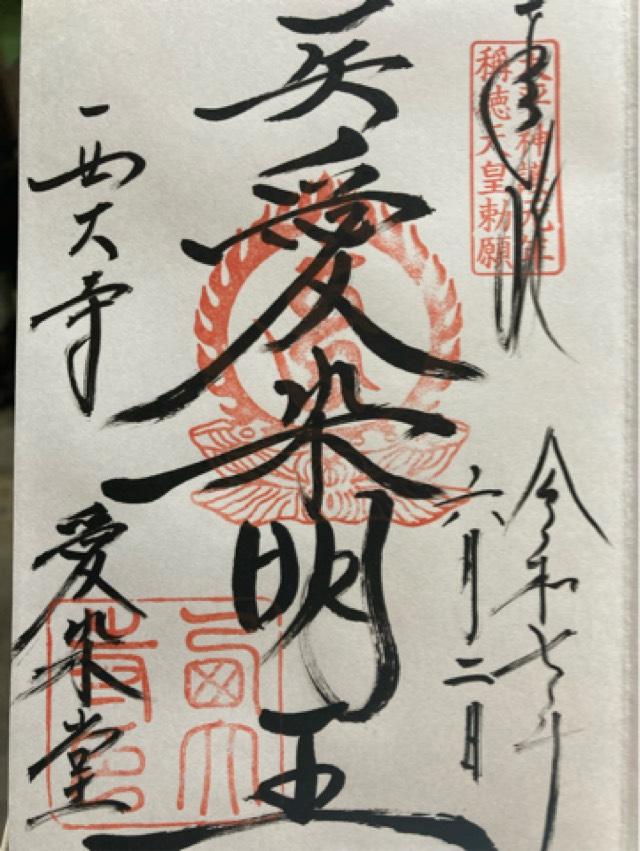 奉拝
天平神護元年
稱徳天皇勅願
令和七年
六月二日
愛染明王
西大寺
愛染堂